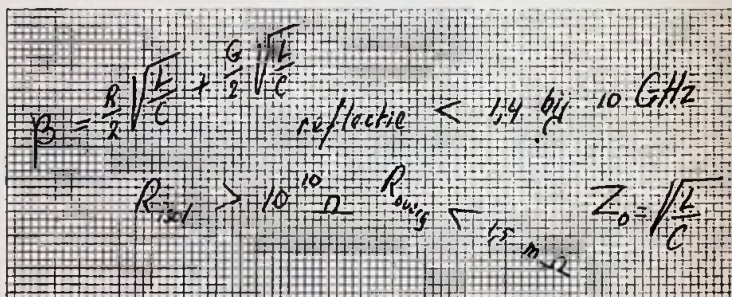 β = R/2 √L/C + G/2 √L/C
reflectie < 1,4 bij 10 GHz
R isol > 10^10 Ω R overg < 1,5 mΩ Z₀ = √L/C